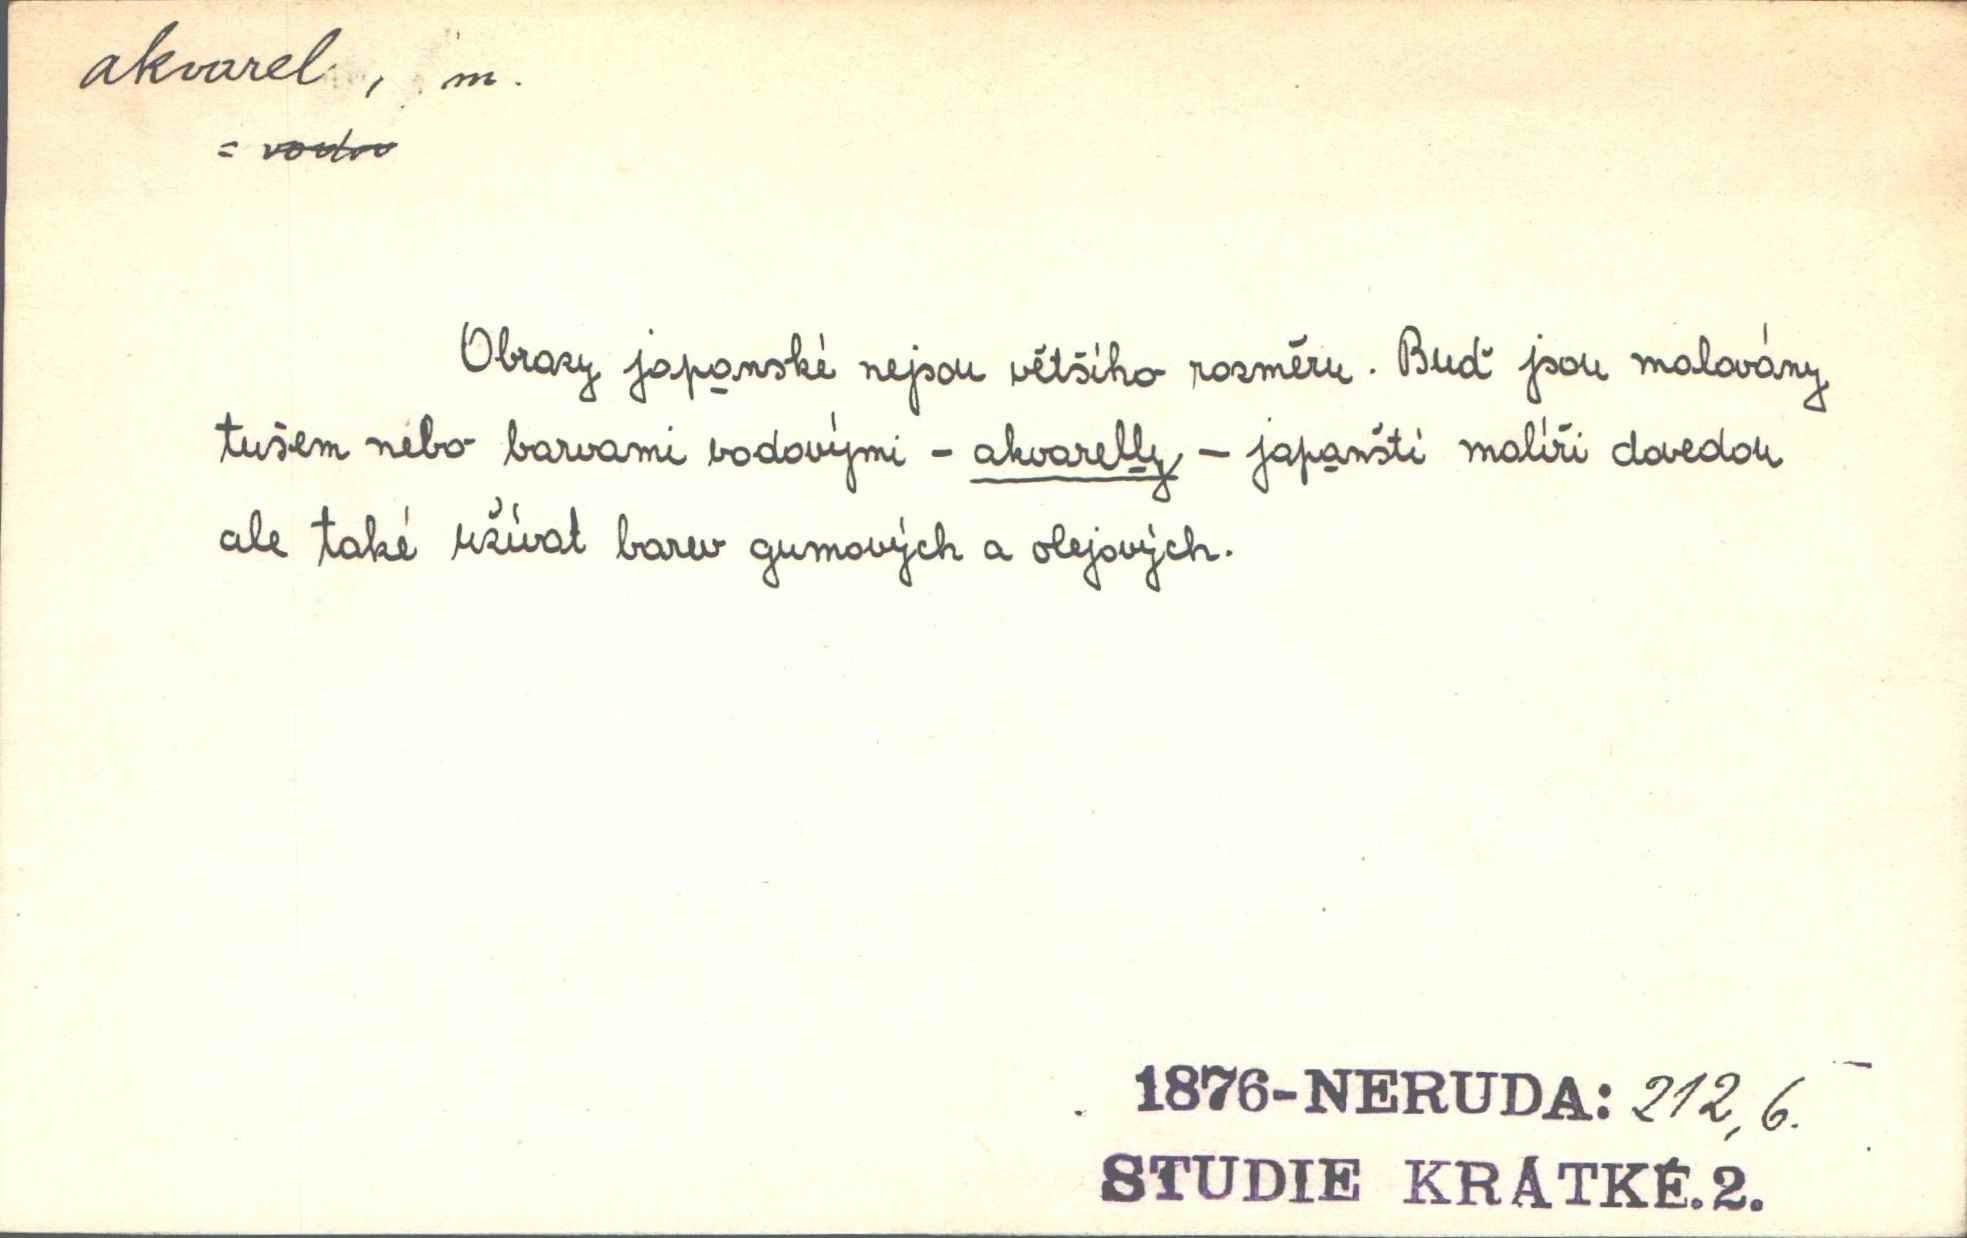 akvarel, m.
=
Obrazy japanské nejsou většího rozměru. Buď jsou malovány
tušem nebo barvami vodovými – akvarelly – japanští malíři dovedou
ale také užívat barev gumových a olejových.
1876-NERUDA: 212, 6.
STUDIE KRÁTKÉ. 2.